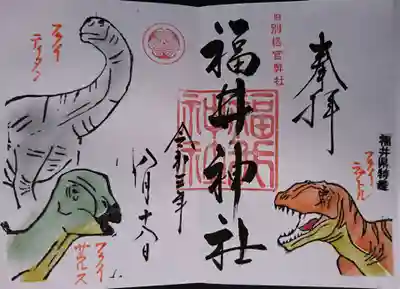 奉拝
福井県特産
フクイ
ラプトル
旧別格官幣社
福井神社
福井
神社
令和三年
八月十八日
フクイ
ティタン
フクイ
サウルス